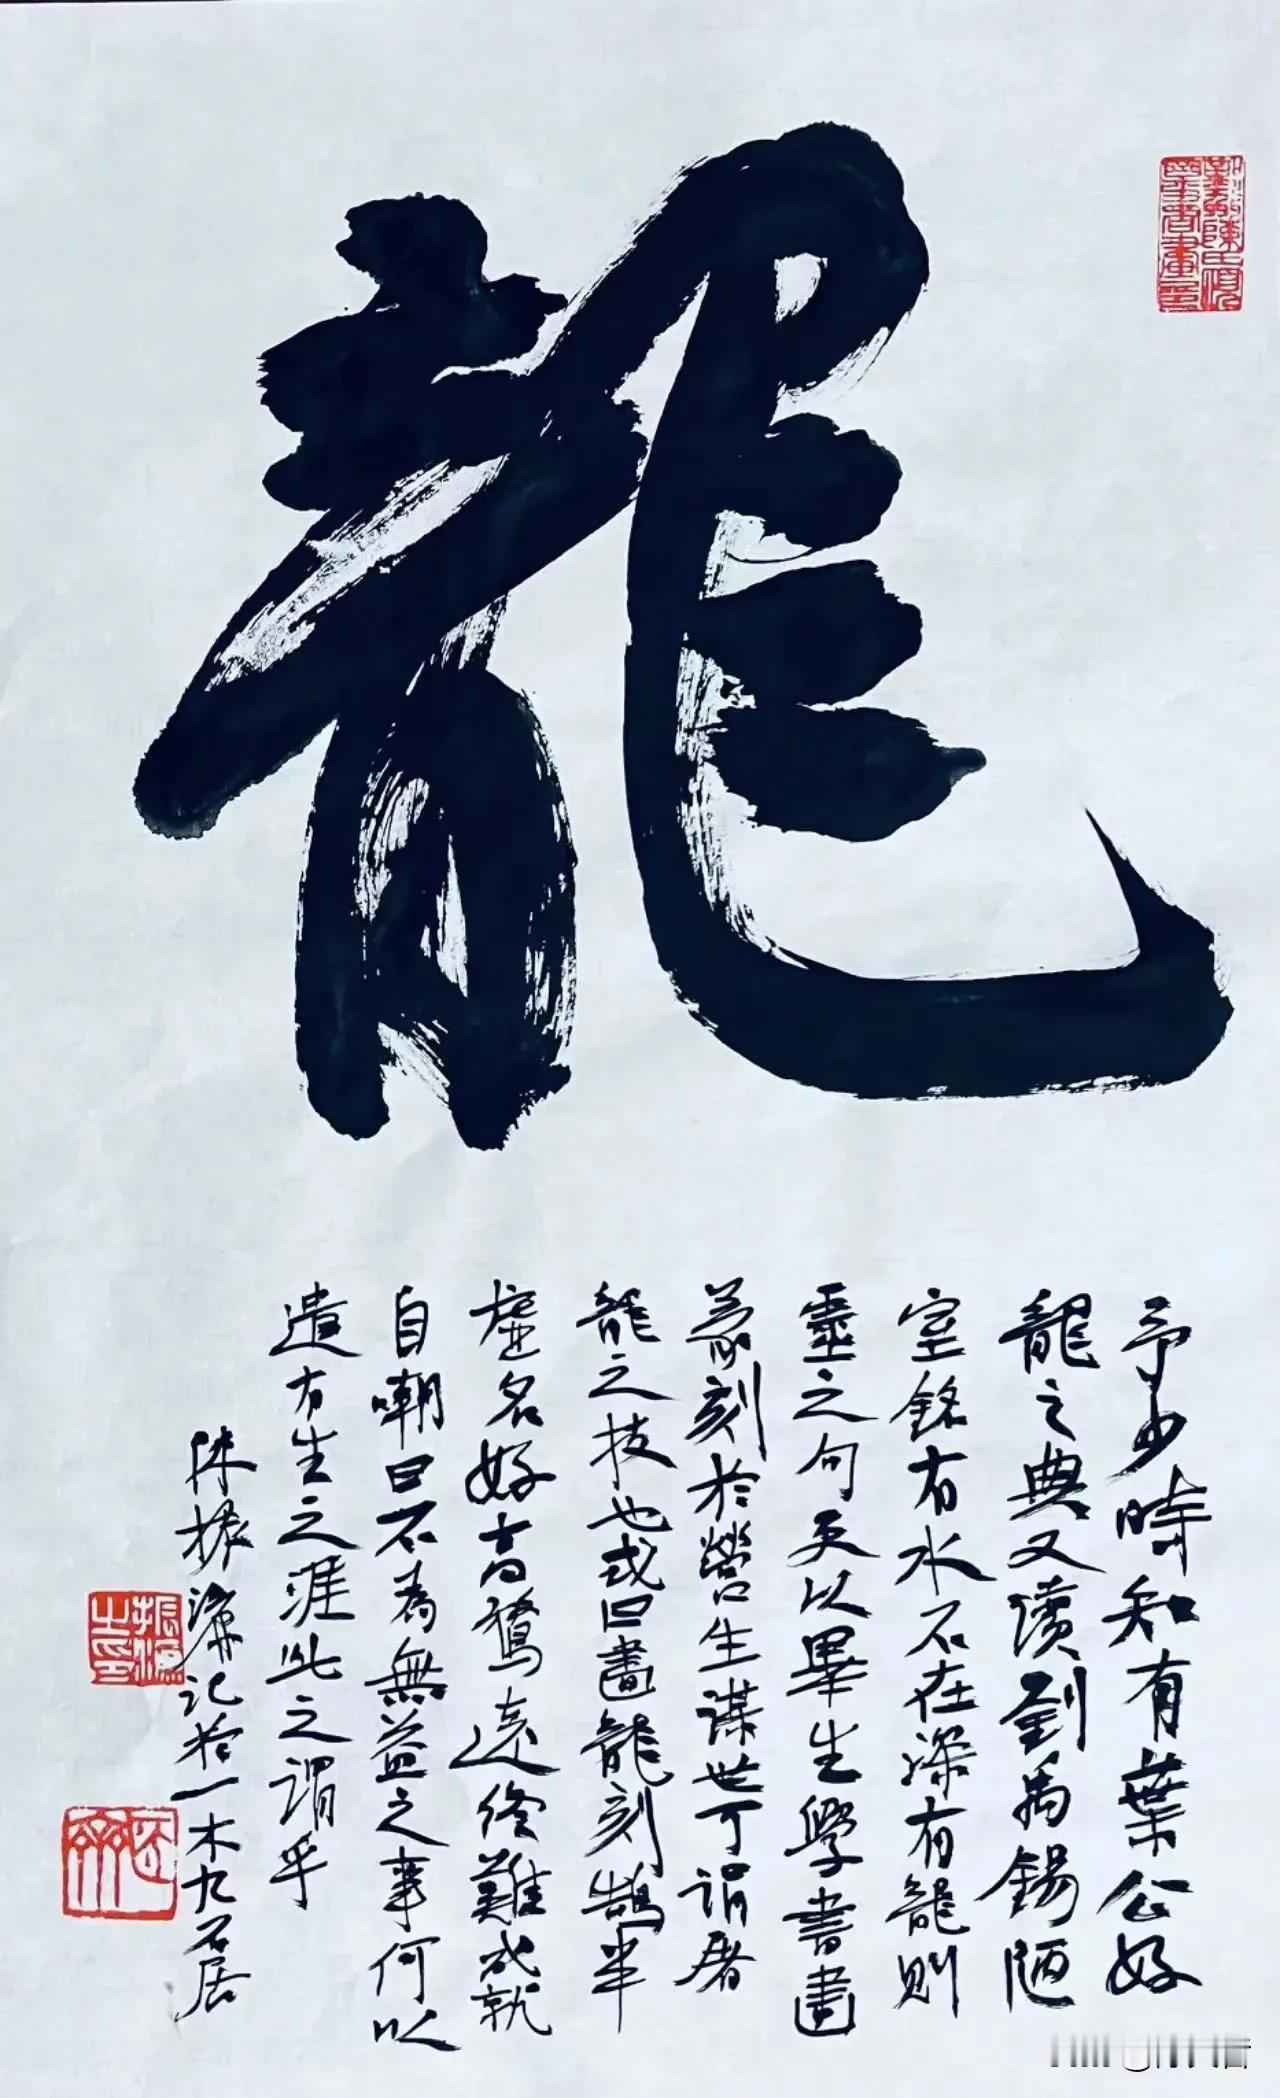 龍
予少時知有葉公好
龍之典又讀劉禹錫陋
室銘有水不在深有龍則
靈之句更以畢生學書畫
篆刻於營生謀世可謂屠
龍之技也或曰畫龍刻鵠半
虛名好高騖遠終難成就
自嘲曰不為無益之事何以
遣有生之涯此之謂乎
陳振濂記於一木九石居